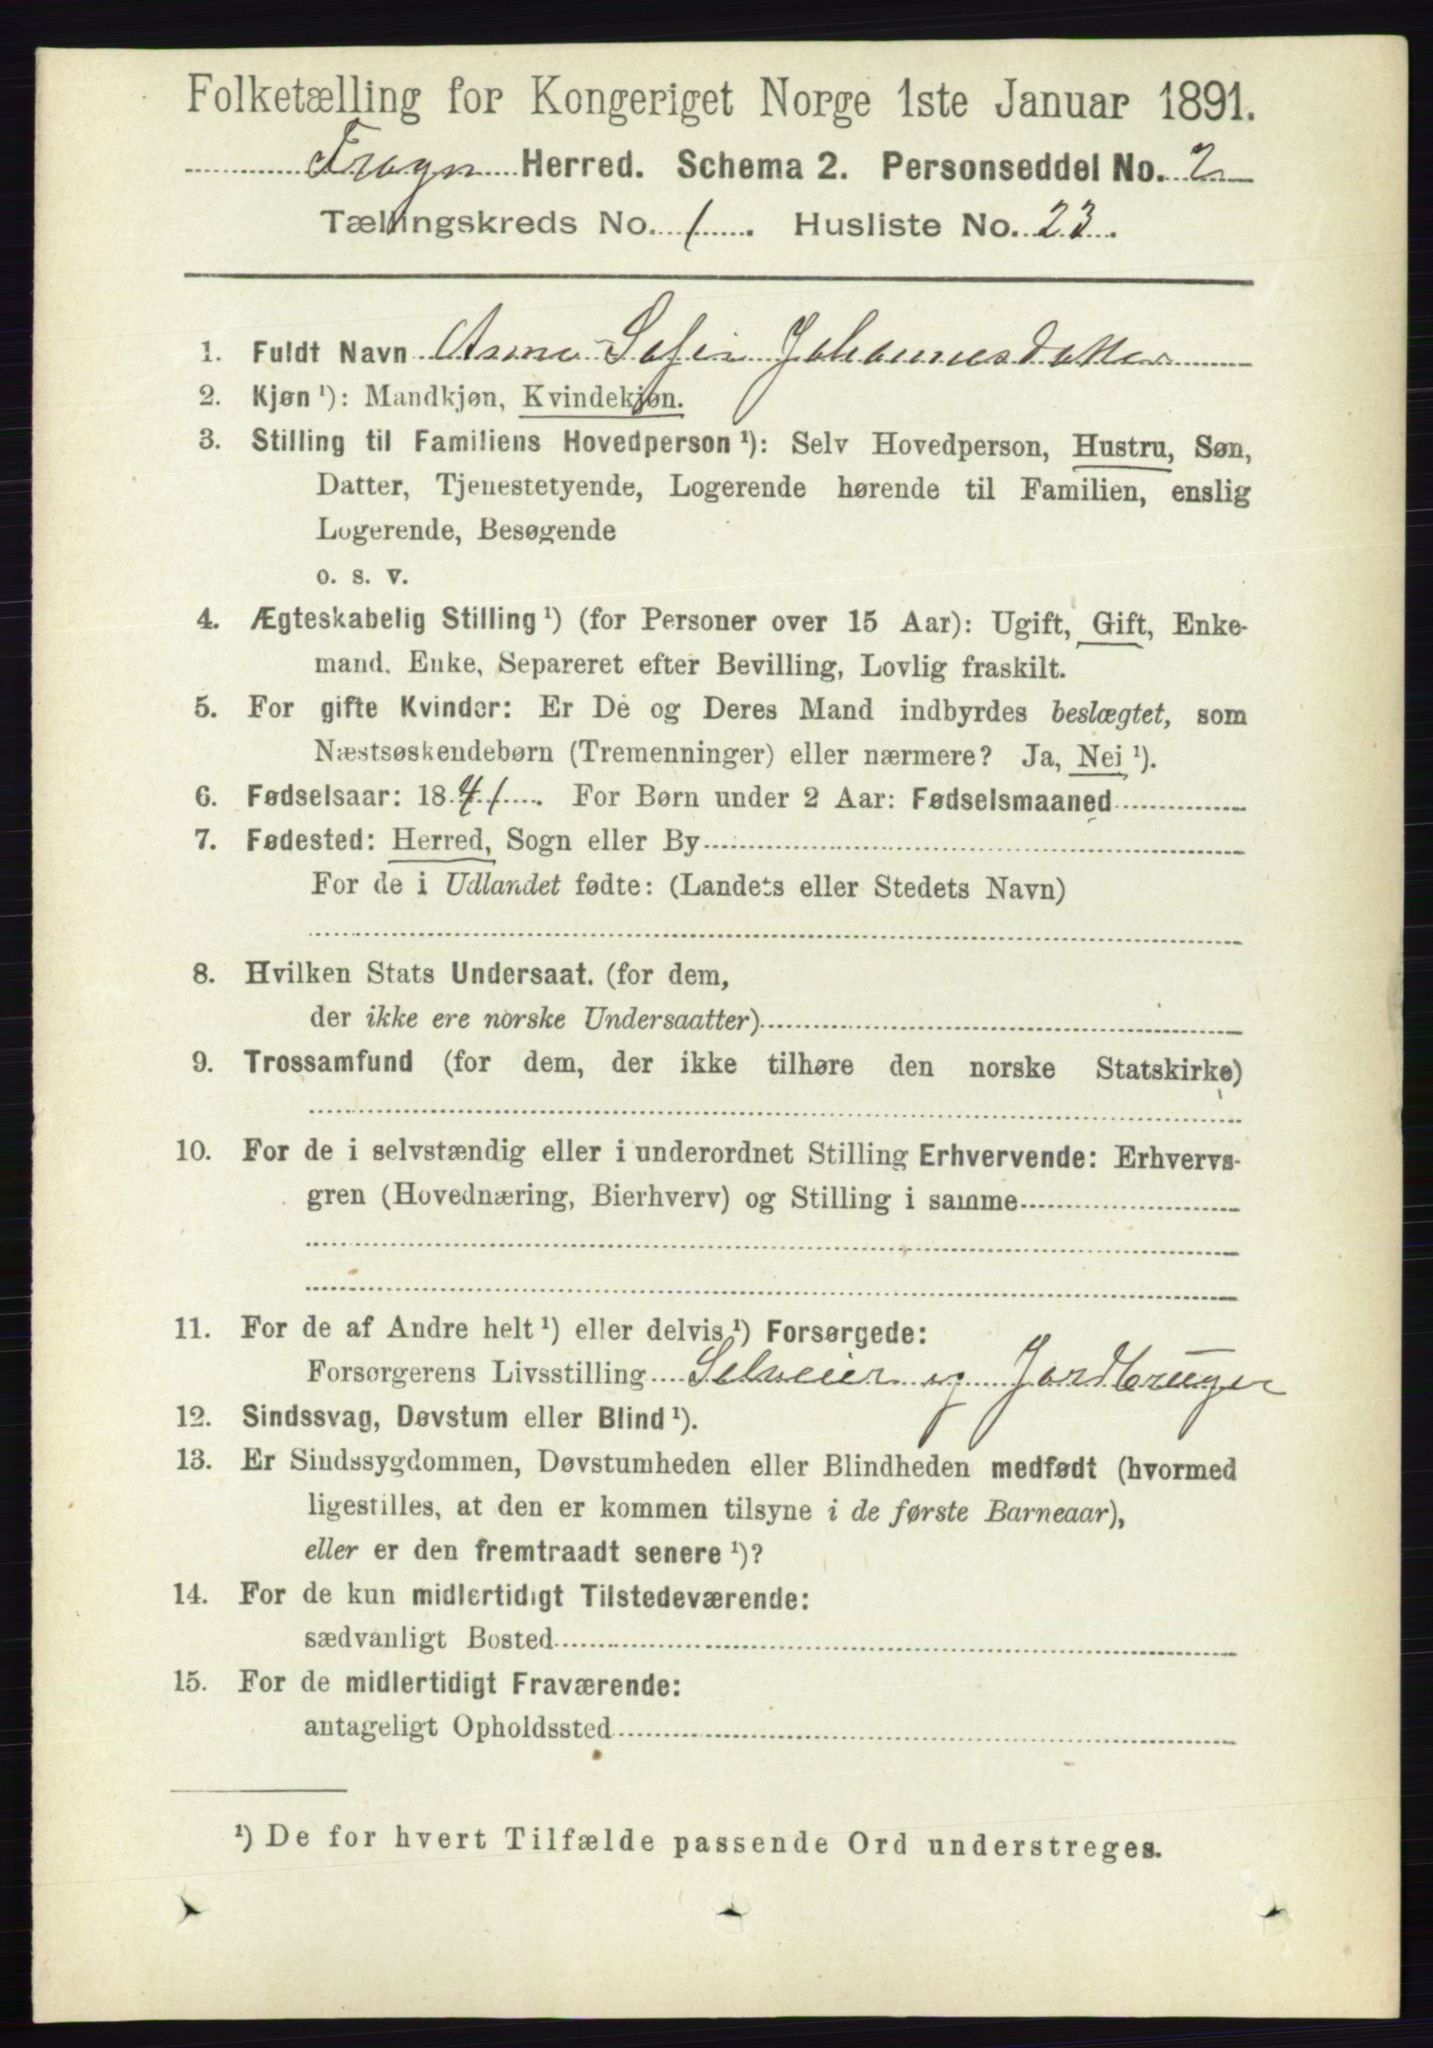 Folketælling for Kongeriget Norge 1ste Januar 1891.
Frogn Herred. Schema 2. Personseddel No. 2
Tællingskreds No. 1. Husliste No. 23.
1. Fuldt Navn Anna Sofie Johannesdatter
2. Kjøn ¹): Mandkjøn, Kvindekjøn.
3. Stilling til Familiens Hovedperson ¹): Selv Hovedperson, Hustru, Søn,
Datter, Tjenestetyende, Logerende hørende til Familien, enslig
Logerende, Besøgende
o. s. v.
4. Ægteskabelig Stilling ¹) (for Personer over 15 Aar): Ugift, Gift, Enke-
mand, Enke, Separeret efter Bevilling, Lovlig fraskilt.
5. For gifte Kvinder: Er De og Deres Mand indbyrdes beslægtet, som
Næstsøskendebørn (Tremenninger) eller nærmere? Ja, Nei ¹).
6. Fødselsaar: 1841. For Børn under 2 Aar: Fødselsmaaned
7. Fødested: Herred, Sogn eller By
For de i Udlandet fødte: (Landets eller Stedets Navn)
8. Hvilken Stats Undersaat. (for dem,
der ikke ere norske Undersaatter)
9. Trossamfund (for dem, der ikke tilhøre den norske Statskirke)
10. For de i selvstændig eller i underordnet Stilling Erhvervende: Erhvervs-
gren (Hovednæring, Bierhverv) og Stilling i samme
11. For de af Andre helt ¹) eller delvis ¹) Forsørgede:
Forsørgerens Livsstilling Selveier og Jordbruger
12. Sindssvag, Døvstum eller Blind ¹).
13. Er Sindssygdommen, Døvstumheden eller Blindheden medfødt (hvormed
ligestilles, at den er kommen tilsyne i de første Barneaar),
eller er den fremtraadt senere ¹)?
14. For de kun midlertidigt Tilstedeværende:
sædvanligt Bosted
15. For de midlertidigt Fraværende:
antageligt Opholdssted
¹) De for hvert Tilfælde passende Ord understreges.